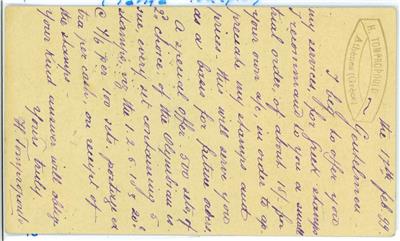 H. TOMPROPOULOS
Athènes (Grèce)
the 17th feb. 99.
Gentlemen
I beg to offer you
my services, for greek stamps
I recommand to you a small
trial order, of about 10/- for
your own ap, in order to ap-
preciate my stamps and
prices - this will serve you
as a basis for future orders.
A special offer 500 sets of
2d choice of the Olympian is-
sue, every set containing 5
stamps, viz the 1. 2. 5. 10 & 20
@ 4/2 per 100 sets. postage ex-
tra per cash, on receipt of
the stamps -
Your kind answer will oblige
Yours truly
H Tompropoulos